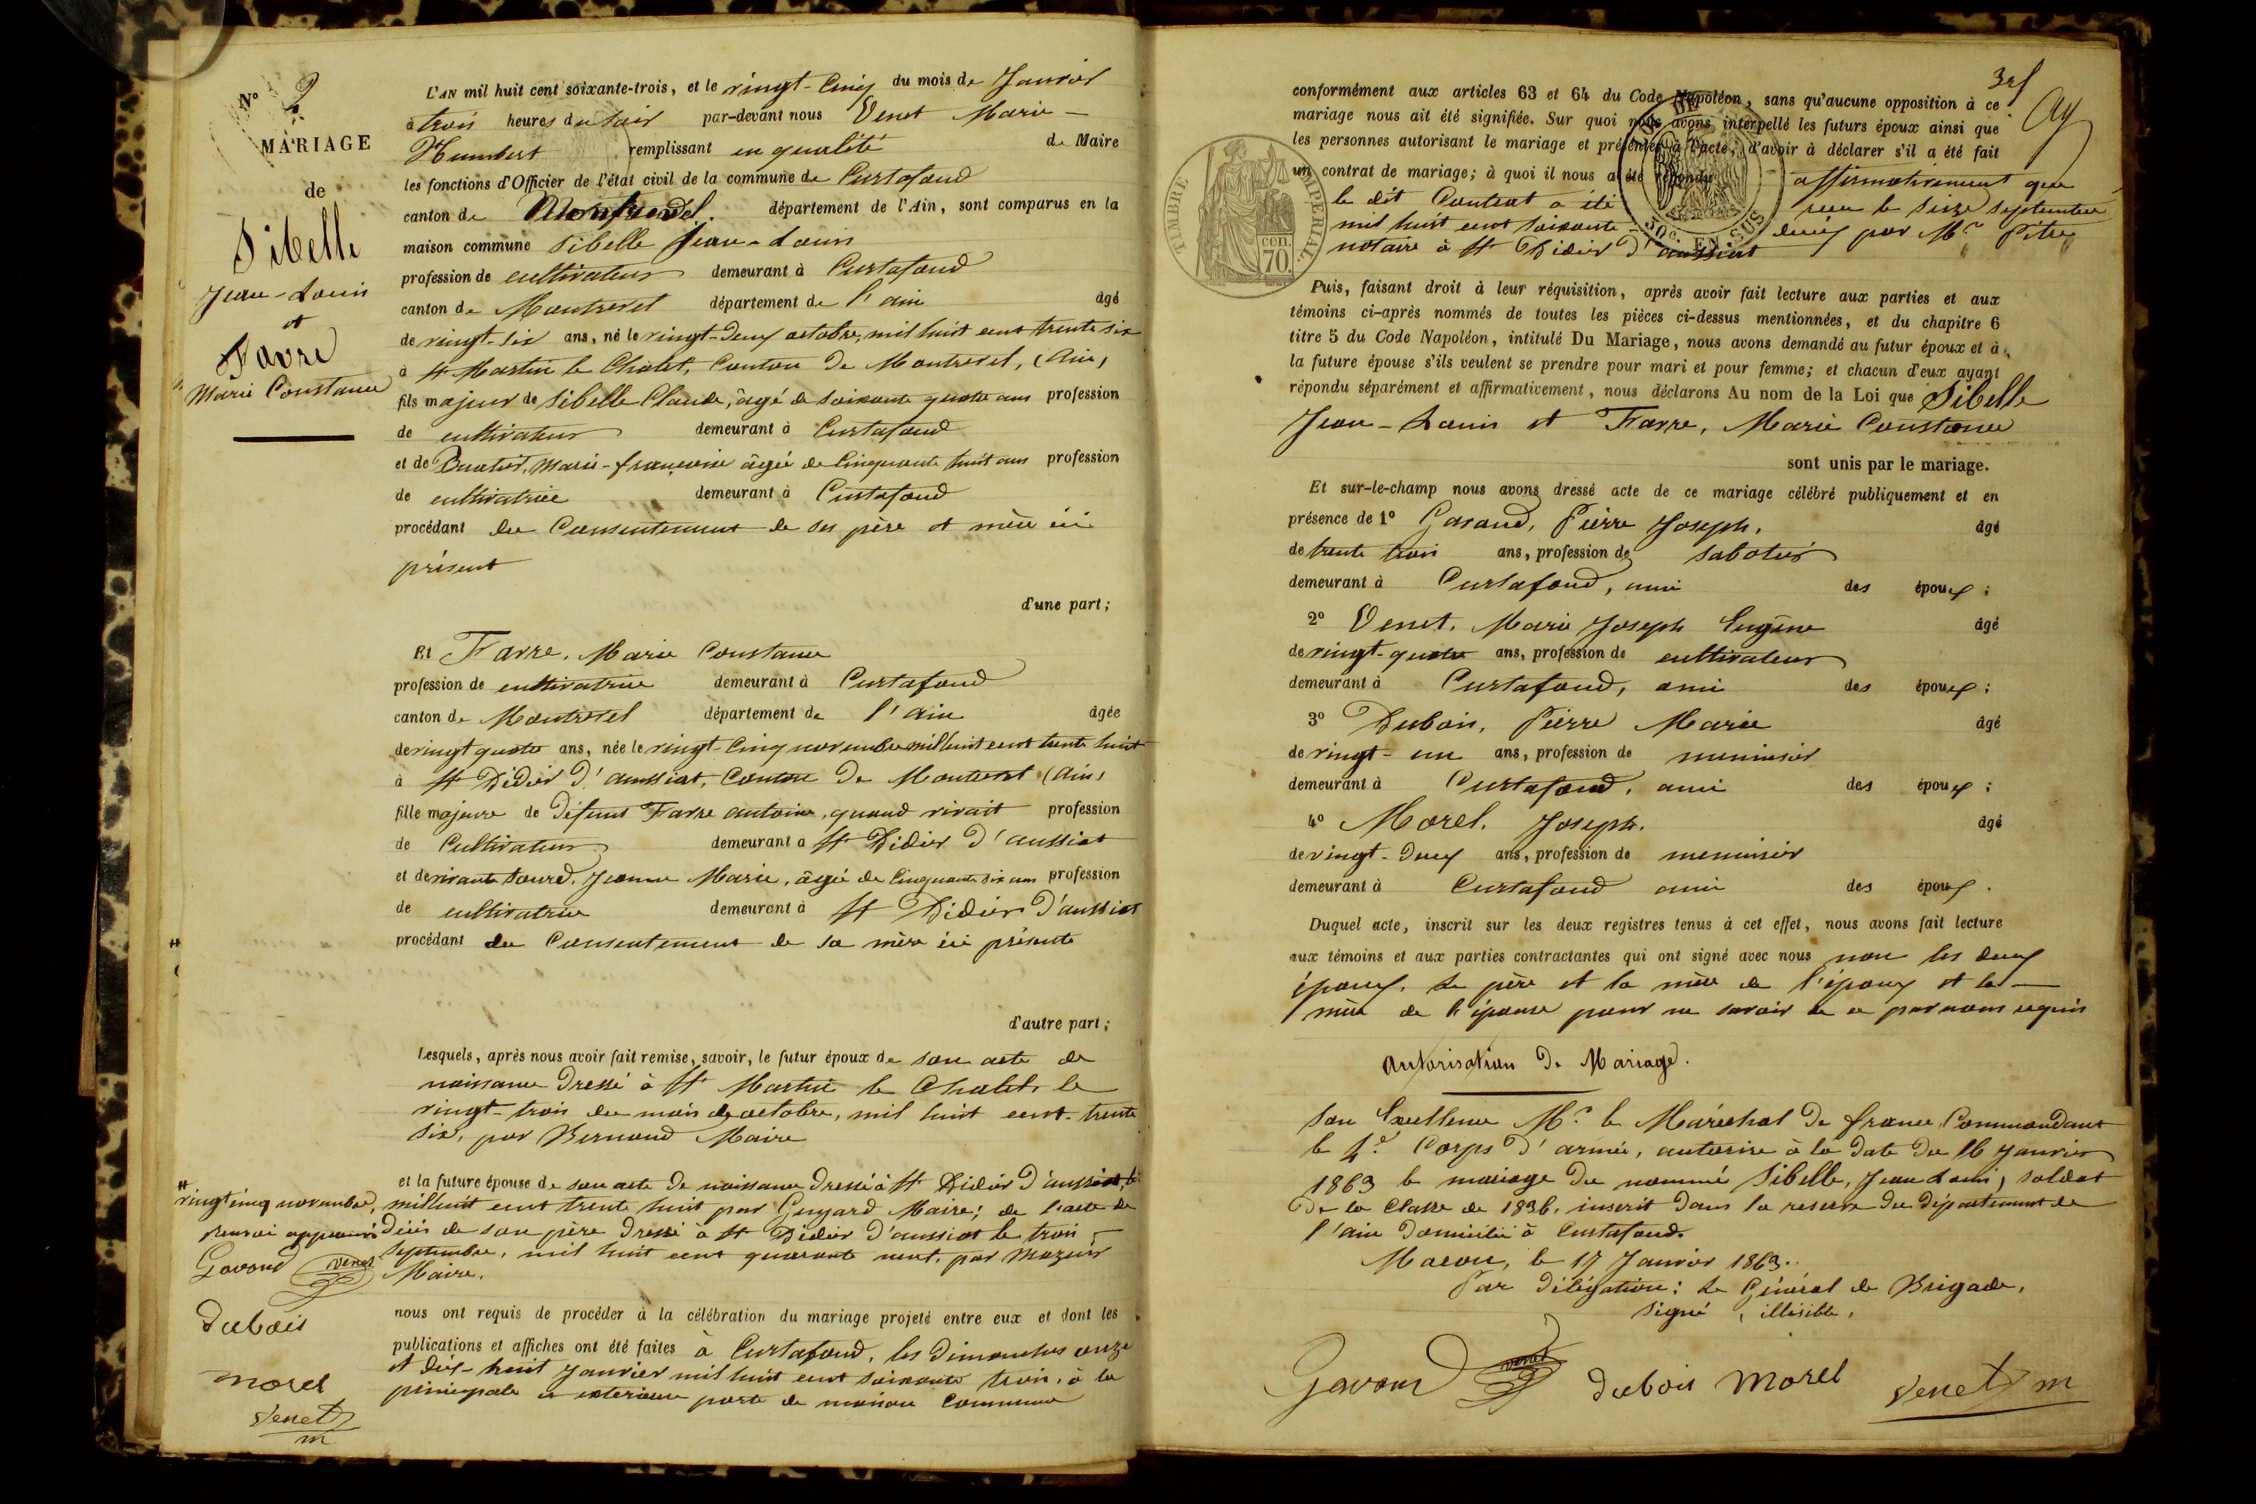 N° 2
MARIAGE
de
Sibelle
Jean-Louis
et
Favre
Marie Constance
L'AN mil huit cent soixante-trois, et le vingt-cinq du mois de Janvier
à trois heures du soir par-devant nous Venet Marie
Humbert remplissant en qualité de Maire
les fonctions d'Officier de l'état civil de la commune de Curtafond
canton de Montrevel. département de l'Ain, sont comparus en la
maison commune Sibelle Jean-Louis
profession de cultivateur demeurant à Curtafond
canton de Montrevel département de l'ain âgé
de vingt-six ans, né le vingt-deux octobre, mil huit cent trente six
à St Martin le Chatel, Canton de Montrevel, (Ain)
fils majeur de Sibelle Claude, âgé de soixante quatre ans profession
de cultivateur demeurant à Curtafond
et de Marie-françoise âgée de cinquante huit ans profession
de cultivatrice demeurant à Curtafond
procédant du Consentement de ses père et mère ici
présent
d'une part;
Et Favre, Marie Constance
profession de cultivatrice demeurant à Curtafond
canton de Montrevel département de l'ain âgée
de vingt quatre ans, née le vingt-cinq novembre mil huit cent trente huit
à St Didier d'aussiat, Canton de Montrevel (Ain)
fille majeure de défunt Favre antoine, quand vivait profession
de Cultivateur demeurant à St Didier d'aussiat
et de vivante Jeanne Marie, âgée de cinquante six ans profession
de cultivatrice demeurant à St Didier d'aussiat
procédant du Consentement de sa mère ici présente
d'autre part;
Lesquels, après nous avoir fait remise, savoir, le futur époux de son acte de
naissance dressé à St Martin le Chatel, le
vingt-trois du mois de octobre, mil huit cent-trente
six, par Bernand Maire
et la future épouse de son acte de naissance dressé à St Didier d'aussiat le
vingt cinq novembre, mil huit cent trente huit par Guyard Maire; de l'acte de
renvoi approuvé décès de son père dressé à St Didier d'aussiat le trois
septembre, mil huit cent quarante neuf, par Mazuir
Maire.
Gavand Venet
dubois
morel
Venet m
nous ont requis de procéder à la célébration du mariage projeté entre eux et dont les
publications et affiches ont été faites à Curtafond, les dimanches onze
et dix-huit Janvier mil huit cent soixante trois, à la
principale et exterieure porte de maison Commune
conformément aux articles 63 et 64 du Code Napoléon, sans qu'aucune opposition à ce
mariage nous ait été signifiée. Sur quoi nous avons interpellé les futurs époux ainsi que
les personnes autorisant le mariage et présentes à l'acte, d'avoir à déclarer s'il a été fait
un contrat de mariage; à quoi il nous a été répondu affirmativement que
le dit Contrat a été recu le seize septembre
mil huit cent soixante deux par Mr Pitre
notaire à St Didier d'aussiat
TIMBRE IMPERIAL
cen. 70.
50c. EN SUS
Puis, faisant droit à leur réquisition, après avoir fait lecture aux parties et aux
témoins ci-après nommés de toutes les pièces ci-dessus mentionnées, et du chapitre 6
titre 5 du Code Napoléon, intitulé Du Mariage, nous avons demandé au futur époux et à
la future épouse s'ils veulent se prendre pour mari et pour femme; et chacun d'eux ayant
répondu séparément et affirmativement, nous déclarons Au nom de la Loi que Sibelle
Jean-Louis et Favre, Marie Constance
sont unis par le mariage.
Et sur-le-champ nous avons dressé acte de ce mariage célébré publiquement et en
présence de 1° Gavand, Pierre Joseph. âgé
de trente trois ans, profession de sabotier
demeurant à Curtafond, ami des époux;
2° Venet. Marie Joseph Eugène âgé
de vingt-quatre ans, profession de cultivateur
demeurant à Curtafond, ami des époux;
3° Dubois, Pierre Marie âgé
de vingt-un ans, profession de menuisier
demeurant à Curtafond, ami des époux;
4° Morel, Joseph. âgé
de vingt-deux ans, profession de menuisier
demeurant à Curtafond ami des époux.
Duquel acte, inscrit sur les deux registres tenus à cet effet, nous avons fait lecture
aux témoins et aux parties contractantes qui ont signé avec nous non les deux
époux. Le père et la mère de l'époux et la
mère de l'épouse pour ne savoir de ce par nous requis
Autorisation de Mariage.
Son Excellence Mr le Maréchal de france Commandant
le 4e Corps d'armée, autorise à la date du 16 Janvier
1863 le mariage du nommé Sibelle, Jean Louis, soldat
de la Classe de 1836, inscrit dans la reserve du département de
l'ain domicilié à Curtafond.
Macon, le 17 Janvier 1863.
Par délégation: Le Général de Brigade,
signé, illisible,
Gavand Venet dubois morel Venet m